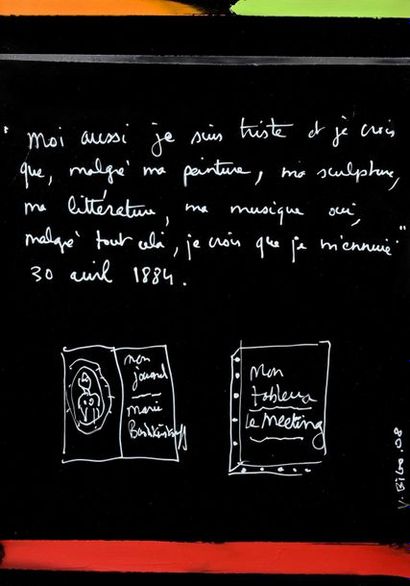 " Moi aussi je suis triste et je crois
que, malgré ma peinture, ma sculpture,
ma littérature, ma musique oui,
malgré tout cela, je crois que je m'ennuie "
30 avril 1884.
mon
journal
marie
Bashkirtseff
Mon
tableau
le Meeting
V. Bilbo.08